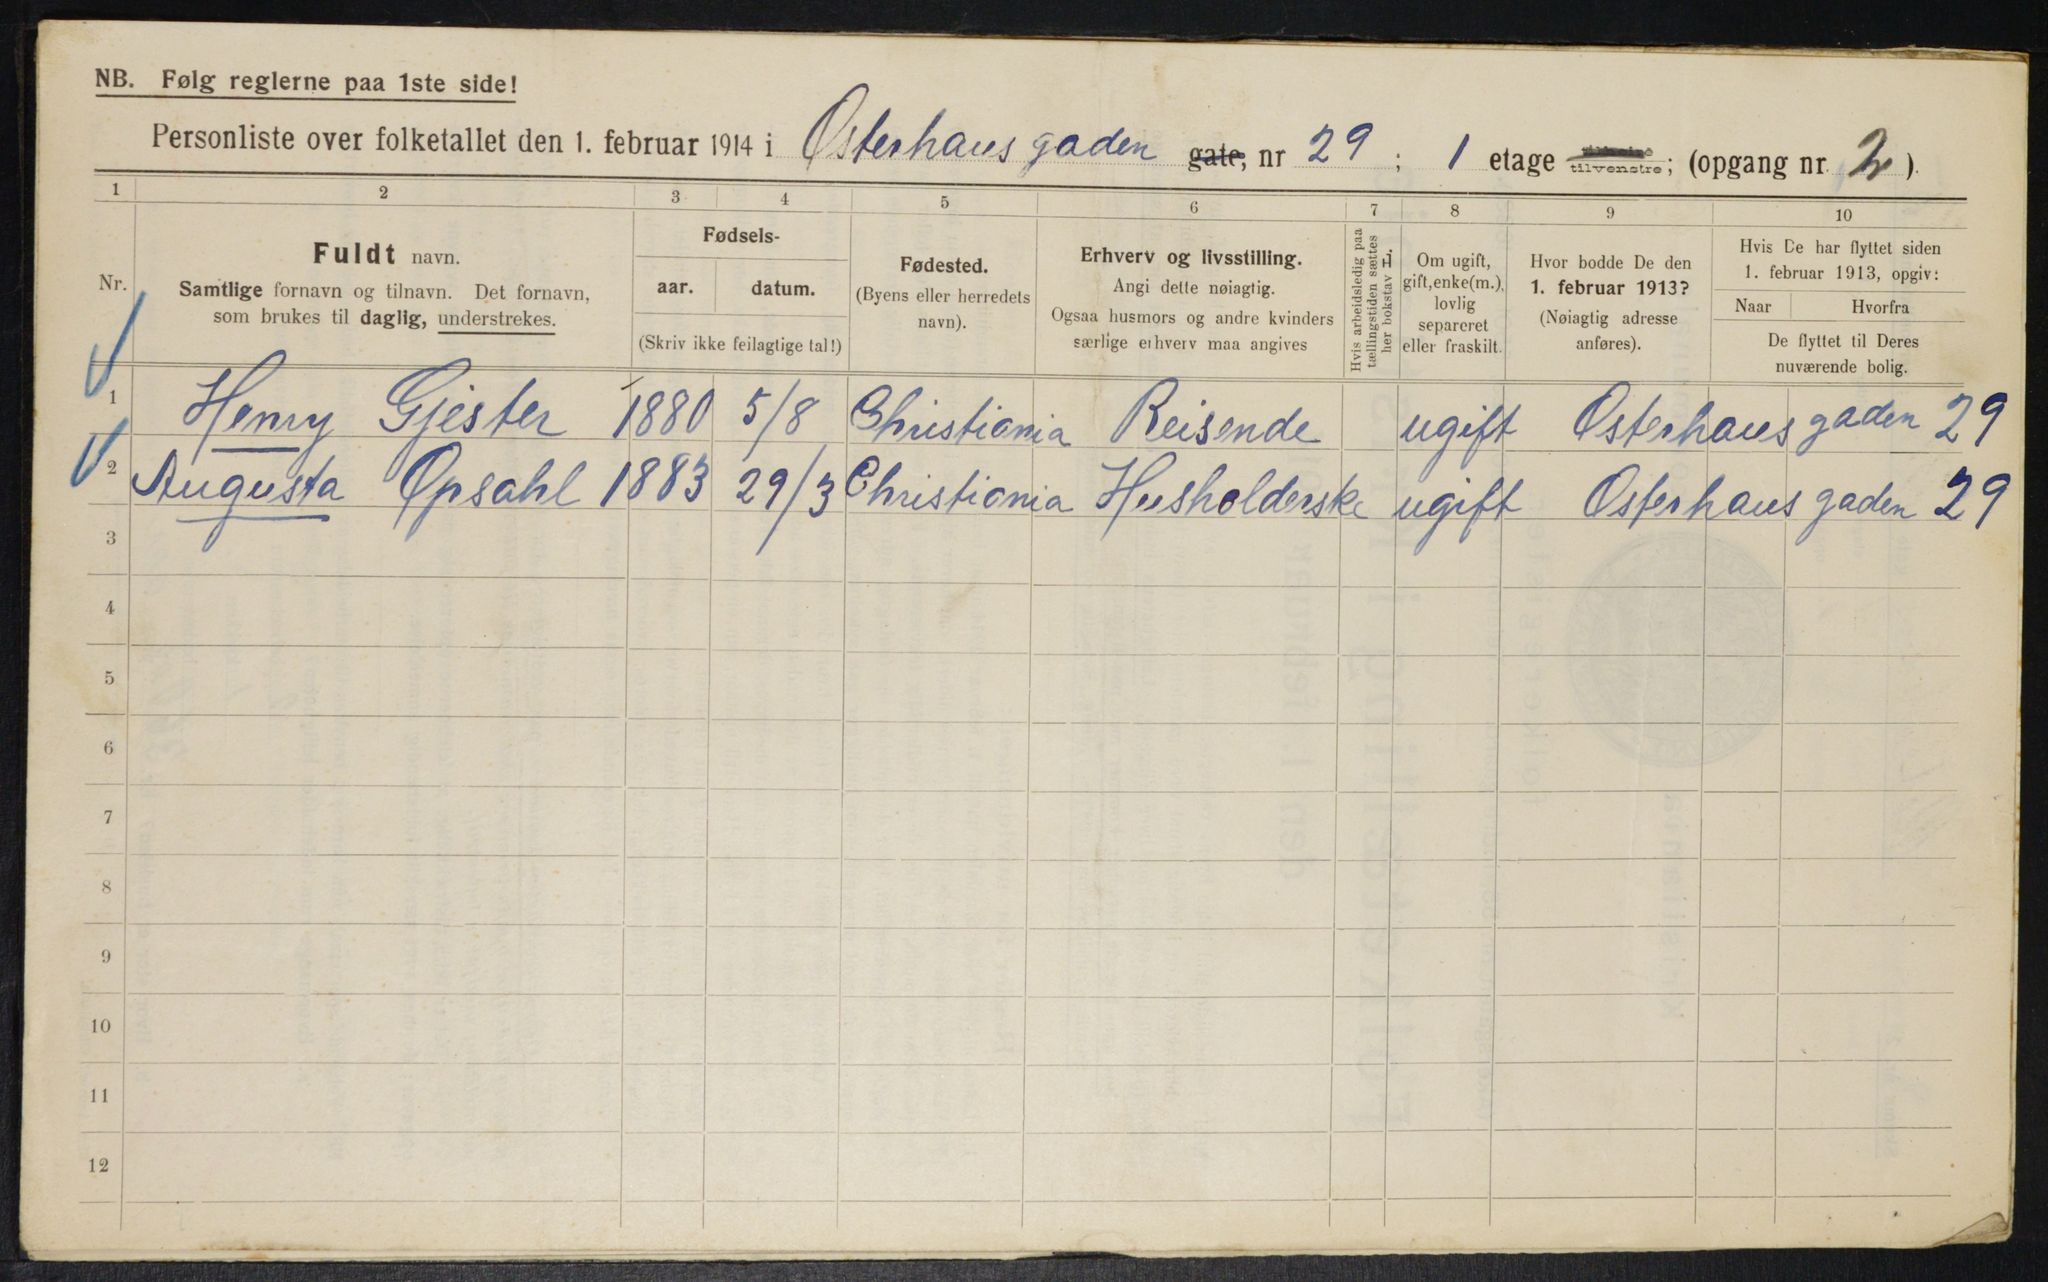 NB. Følg reglerne paa 1ste side!
Personliste over folketallet den 1. februar 1914 i Osterhausgaden gate, nr 29 ; 1 etage tilvenstre; (opgang nr. 2).
1 2 3 4 5 6 7 8 9 10
Nr.
Fuldt navn.
Samtlige fornavn og tilnavn. Det fornavn,
som brukes til daglig, understrekes.
Fødsels-
aar. datum.
(Skriv ikke feilagtige tal!)
Fødested.
(Byens eller herredets
navn).
Erhverv og livsstilling.
Angi dette nøiagtig.
Ogsaa husmors og andre kvinders
særlige erhverv maa angives
Hvis arbeidsledig paa
tællingstiden sættes
her bokstav L.
Om ugift,
gift, enke(m.),
lovlig
separeret
eller fraskilt.
Hvor bodde De den
1. februar 1913?
(Nøiagtig adresse
anføres).
Hvis De har flyttet siden
1. februar 1913, opgiv:
Naar Hvorfra
De flyttet til Deres
nuværende bolig.
1 Henry Gjester 1880 5/8 Christiania Reisende ugift Osterhausgaden 29
2 Augusta Opsahl 1883 29/3 Christiania Husholderske ugift Osterhausgaden 29
3
4
5
6
7
8
9
10
11
12